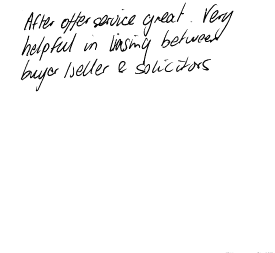 After offer service great. Very
helpful in liasing between
buyer/seller & solicitors